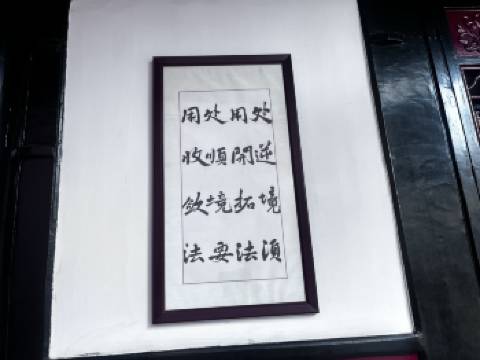 处逆境须
用開拓法
处順境要
用收斂法